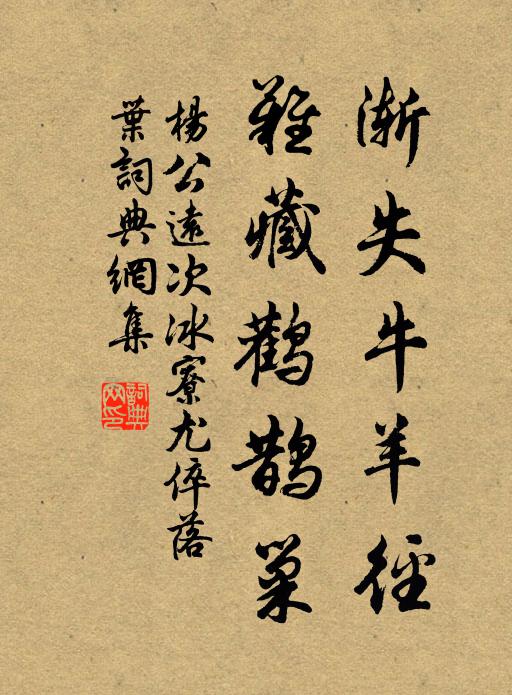 漸失牛羊徑
難藏鸛鵲巢
楊公遠次冰寮尤倅落
葉詞典網集
詞典
网印